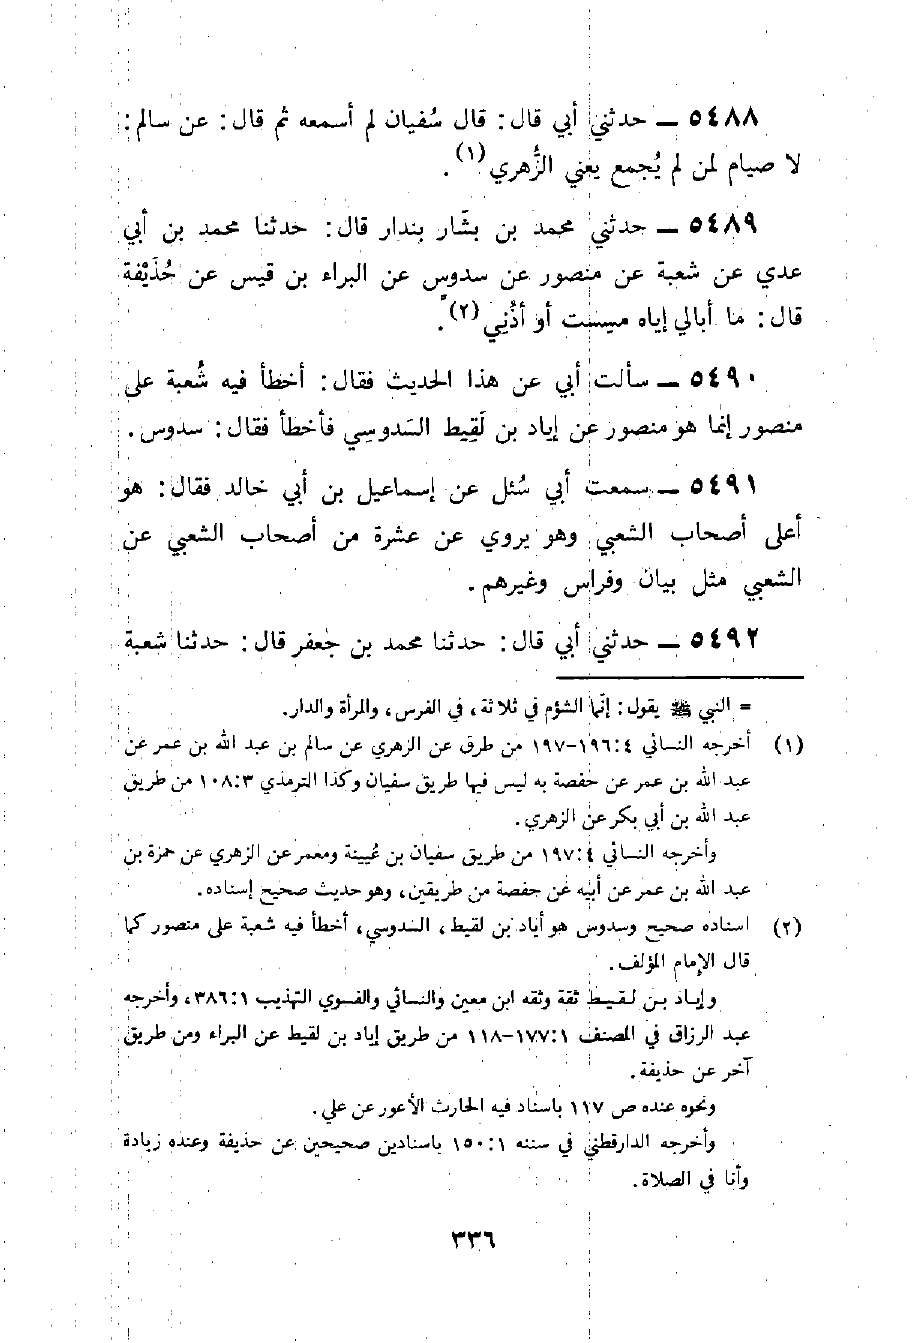 ٥٤٨٨ ــ حدثني أبي قال: قال سُفيان لم أسمعه ثم قال: عن سالم:
لا صيام لمن لم يُجمع يعني الزُّهري(١).
٥٤٨٩ ــ حدثني محمد بن بشّار بندار قال: حدثنا محمد بن أبي
عدي عن شعبة عن منصور عن سدوس عن البراء بن قيس عن حُذَيْفة
قال: ما أبالي إياه مسست أو أذُني(٢).
٥٤٩٠ ــ سألت أبي عن هذا الحديث فقال: أخطأ فيه شُعبة على
منصور إنما هو منصور عن إياد بن لَقِيط السَدوسِي فأخطأ فقال: سدوس.
٥٤٩١ ــ سمعت أبي سُئل عن إسماعيل بن أبي خالد فقال: هو
أعلى أصحاب الشعبي وهو يروي عن عشرة من أصحاب الشعبي عن
الشعبي مثل بيان وفراس وغيرهم.
٥٤٩٢ ــ حدثني أبي قال: حدثنا محمد بن جعفر قال: حدثنا شعبة
= النبي ﷺ يقول: إنّما الشؤم في ثلاثة، في الفرس، والمرأة والدار.
(١) أخرجه النسائي ٤:١٩٦-١٩٧ من طرق عن الزهري عن سالم بن عبد الله بن عمر عن
عبد الله بن عمر عن حفصة به ليس فيها طريق سفيان وكذا الترمذي ٣:١٠٨ من طريق
عبد الله بن أبي بكر عن الزهري.
وأخرجه النسائي ٤:١٩٧ من طريق سفيان بن عُيينة ومعمر عن الزهري عن حمزة بن
عبد الله بن عمر عن أبيه عن حفصة من طريقين، وهو حديث صحيح إسناده.
(٢) اسناده صحيح وسدوس هو أياد بن لقيط، السدوسي، أخطأ فيه شعبة على منصور كما
قال الإمام المؤلف.
وإياد بن لقيط ثقة وثقه ابن معين والنسائي والفسوي التهذيب ١:٣٨٦، وأخرجه
عبد الرزاق في المصنف ١:١٧٧-١١٨ من طريق إياد بن لقيط عن البراء ومن طريق
آخر عن حذيفة.
ونحوه عنده ص ١١٧ باسناد فيه الحارث الأعور عن علي.
وأخرجه الدارقطني في سننه ١:١٥٠ باسنادين صحيحين عن حذيفة وعنده زيادة
وأنا في الصلاة.
٣٣٦